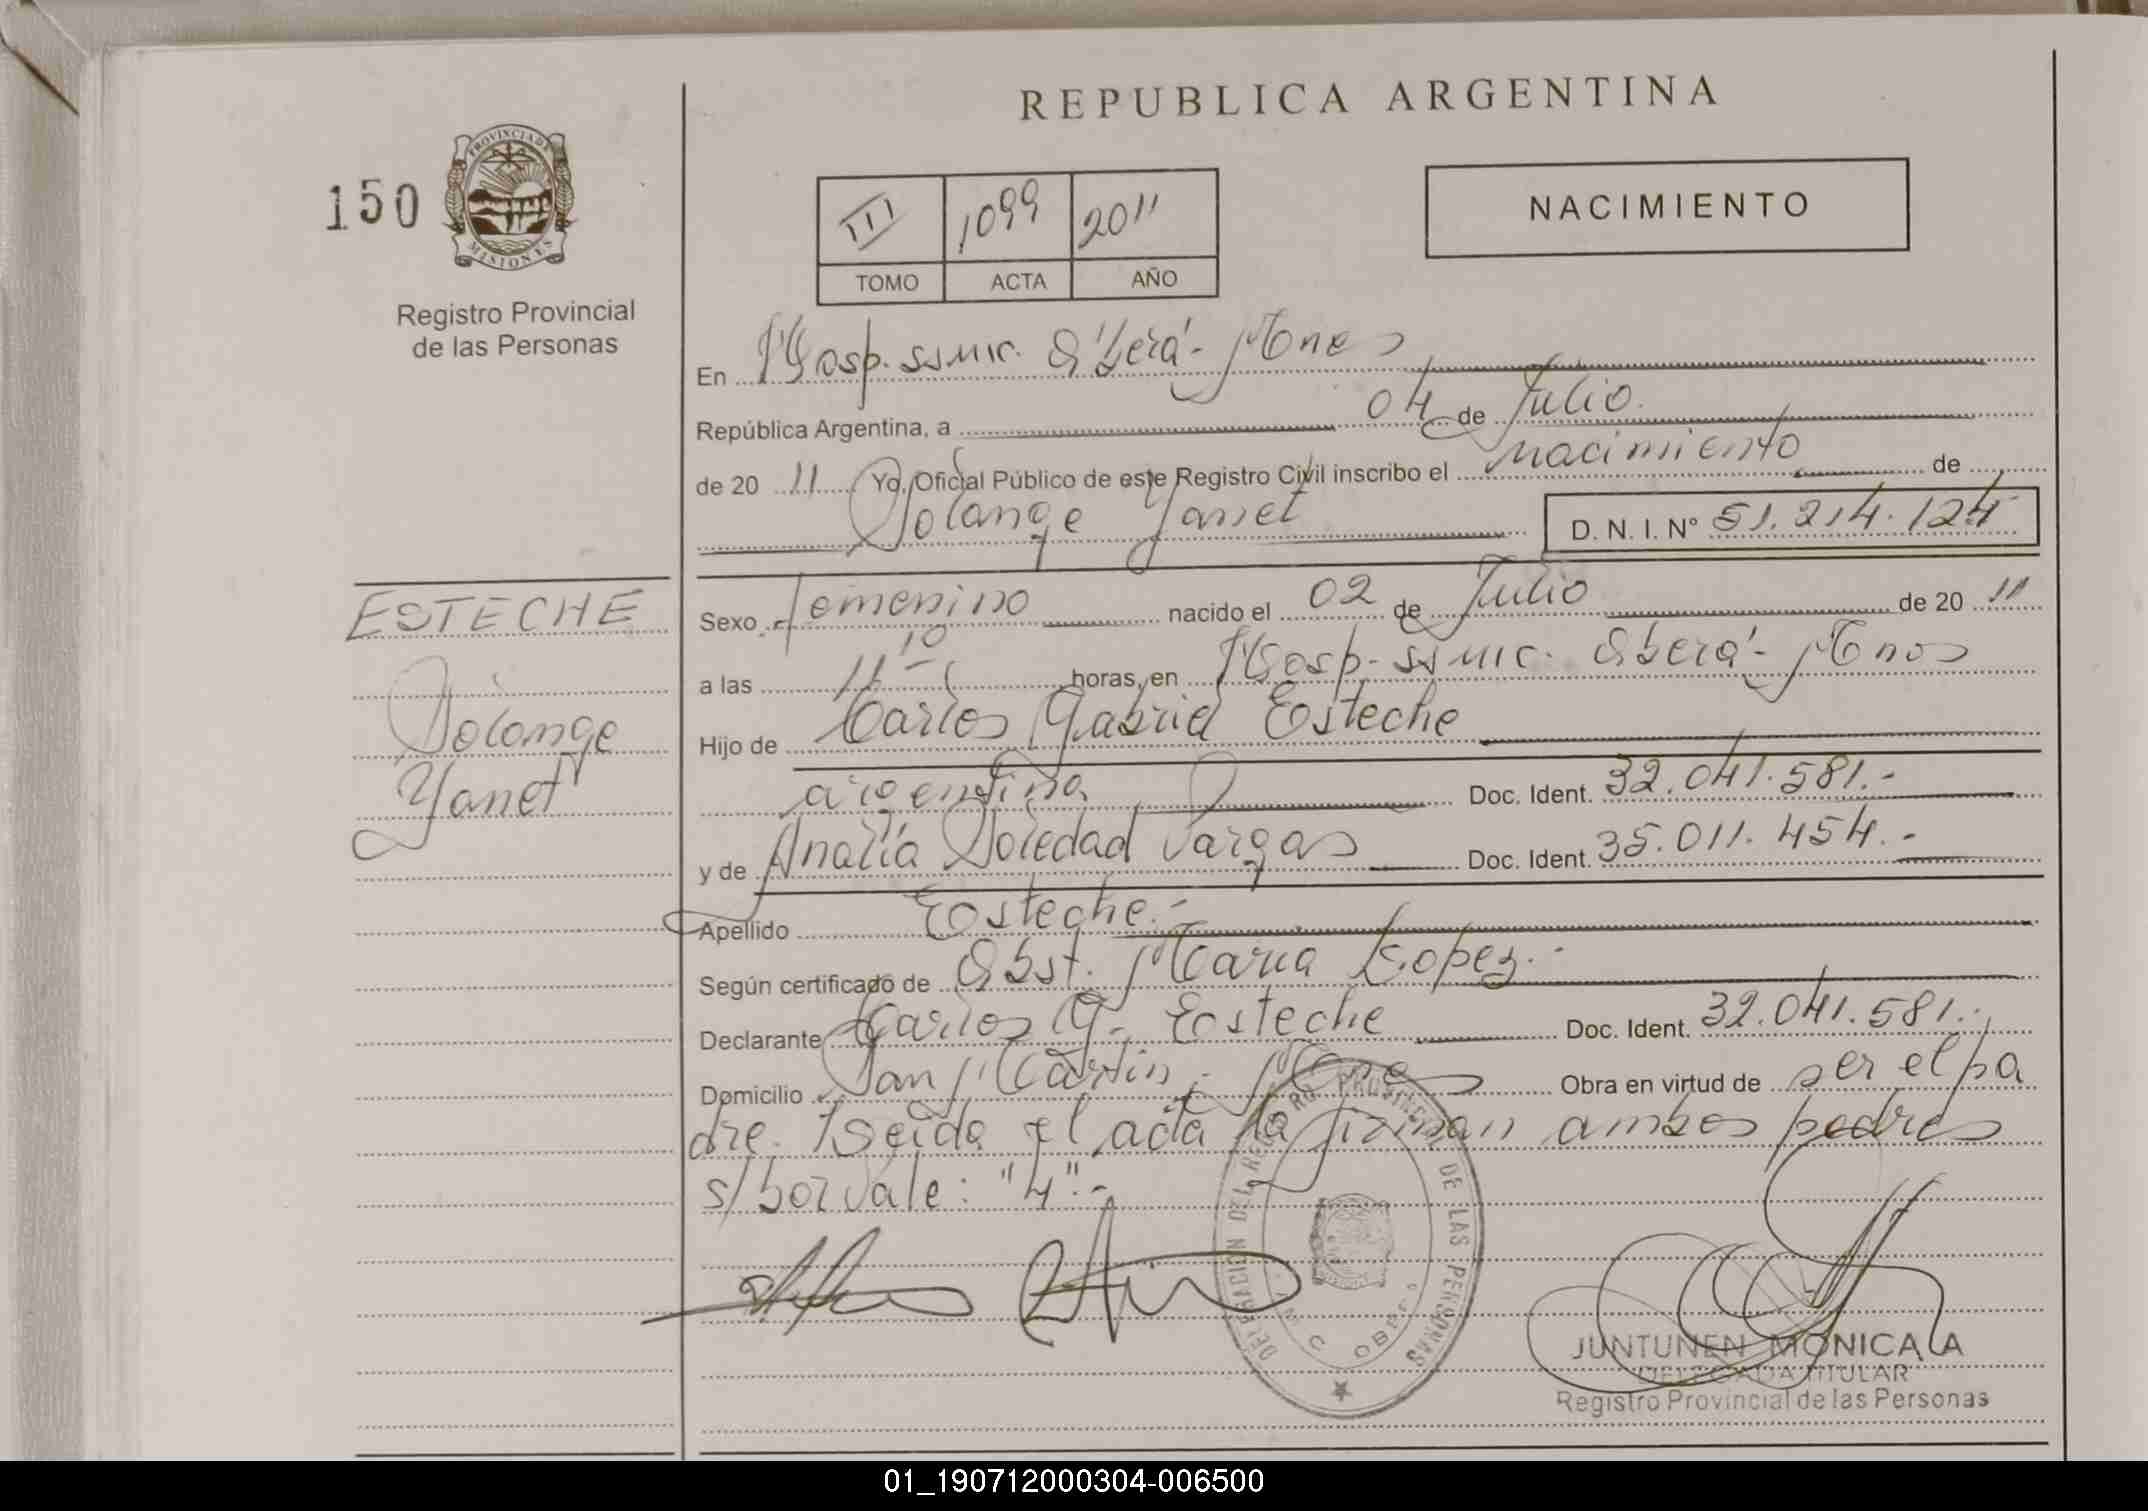 REPUBLICA ARGENTINA
150
PROVINCIA DE
MISIONES
Registro Provincial
de las Personas
III 1099 2011
TOMO ACTA AÑO
NACIMIENTO
En Hosp. SSMIC. Oberá - Mnes
República Argentina, a 04 de Julio
de 20 11 Yo, Oficial Público de este Registro Civil inscribo el nacimiento de
Solange Yanet D. N. I. Nº 51.214.124
ESTECHE
Solange
Yanet
Sexo femenino nacido el 02 de Julio de 20 11
a las 11 10 horas, en Hosp. SSMIC. Oberá - Mnes
Hijo de Carlos Gabriel Esteche
argentina Doc. Ident. 32.041.581.-
y de Analía Soledad Vargas Doc. Ident. 35.011.454.-
Apellido Esteche.-
Según certificado de Obst. Maria Lopez.-
Declarante Carlos G. Esteche Doc. Ident. 32.041.581.-
Domicilio San Martin, Mnes Obra en virtud de ser el pa
dre. Leida el acta la firman ambos padres
s/bor vale: "4".-
DELEGACION DEL REGISTRO PROVINCIAL DE LAS PERSONAS
JUNTUNEN MONICA A
DELEGADA TITULAR
Registro Provincial de las Personas
01_190712000304-006500